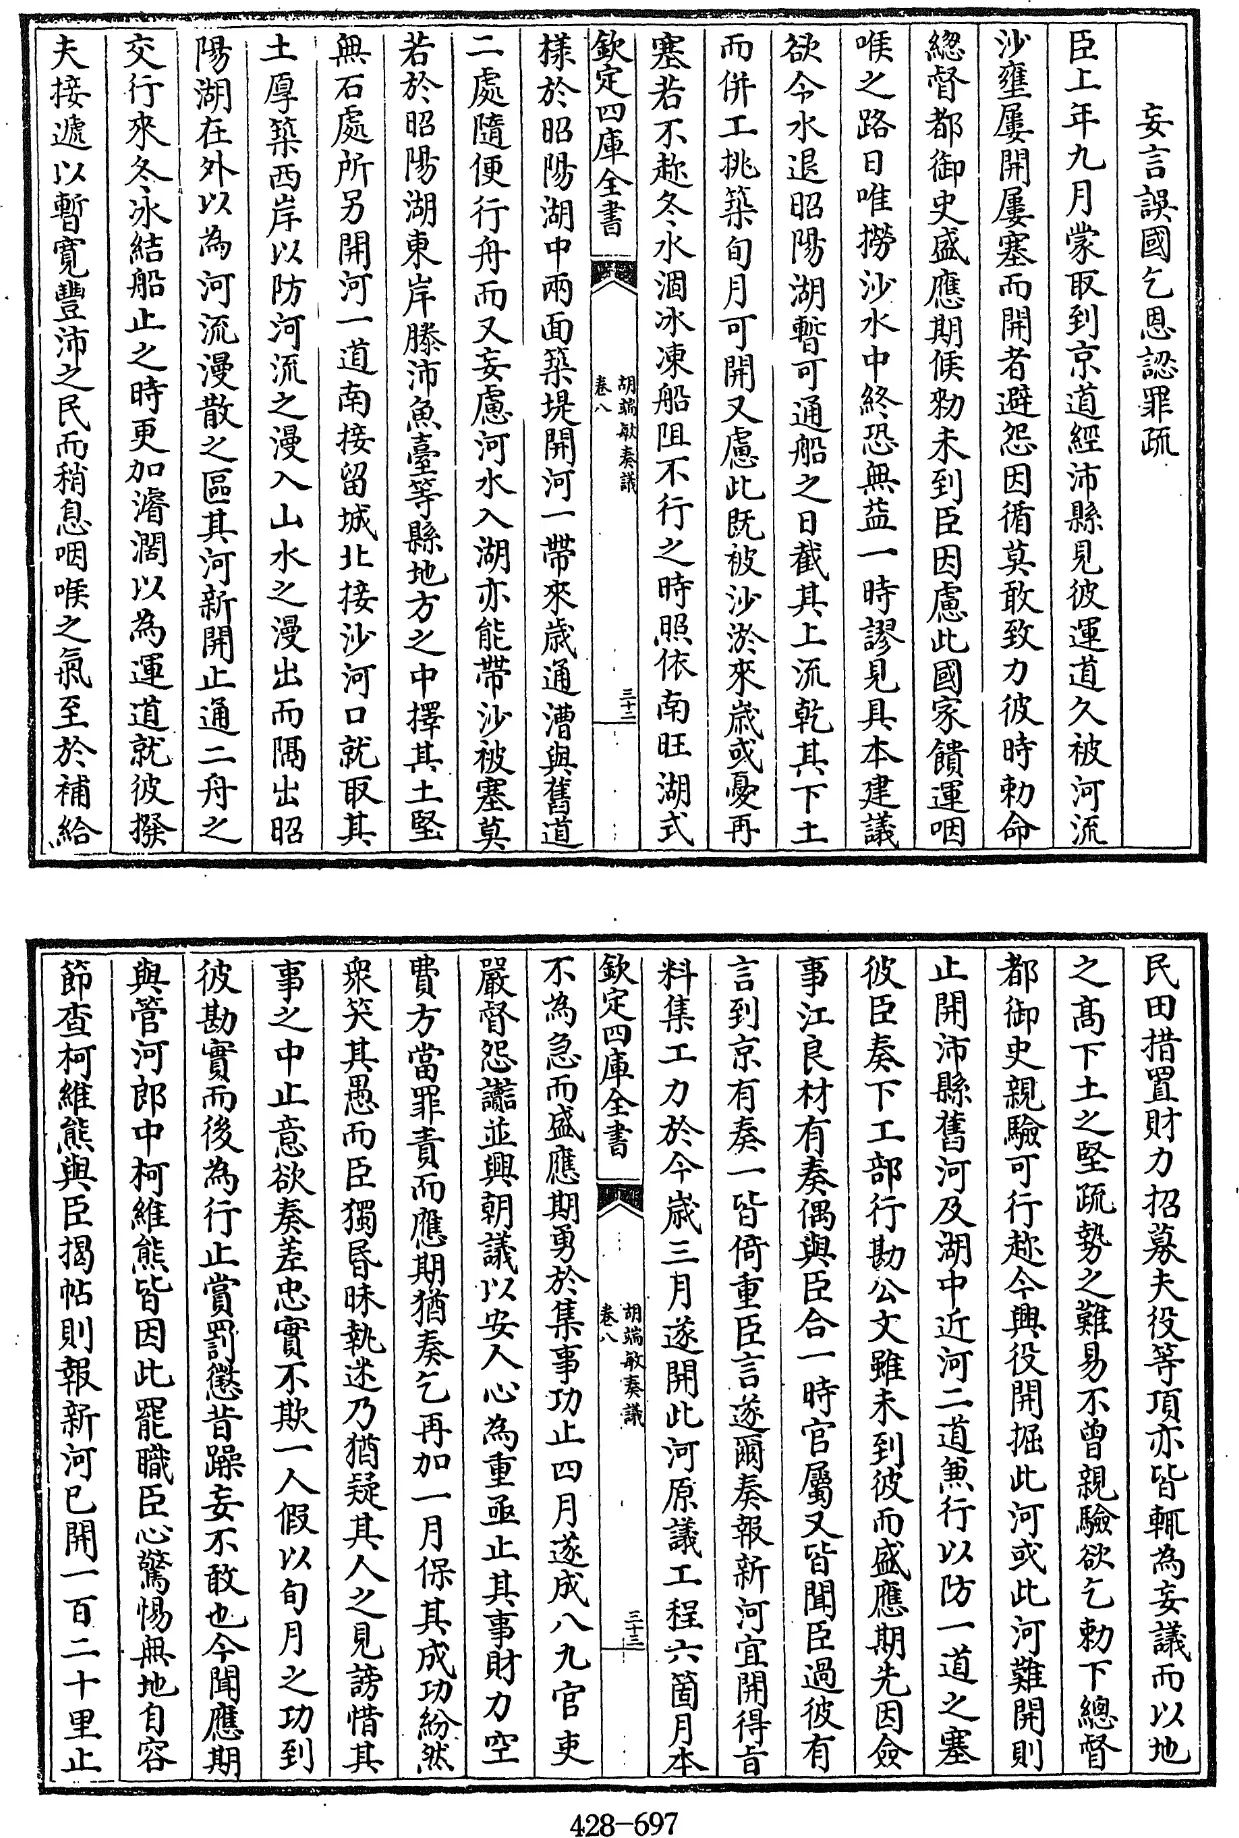 妄言誤國乞恩認罪疏
臣上年九月蒙取到京道經沛縣見彼運道久被河流
沙壅屢開屢塞而開者避怨因循莫敢致力彼時勅命
總督都御史盛應期候勑未到臣因慮此國家饋運咽
喉之路日唯撈沙水中終恐無益一時謬見具本建議
欲令水退昭陽湖暫可通船之日截其上流乾其下土
而併工挑築旬月可開又慮此既被沙淤來嵗或憂再
塞若不趂冬水涸冰凍船阻不行之時照依南旺湖式
欽定四庫全書
胡端敏奏議
卷八
三十二
樣於昭陽湖中兩面築堤開河一帶來歲通漕與舊道
二處隨便行舟而又妄慮河水入湖亦能帶沙被塞莫
若於昭陽湖東岸滕沛魚臺等縣地方之中擇其土堅
無石處所另開河一道南接留城北接沙河口就取其
土厚築西岸以防河流之漫入山水之漫出而隔出昭
陽湖在外以為河流漫散之區其河新開止通二舟之
交行來冬冰結船止之時更加濬濶以為運道就彼撥
夫接遞以暫寛豐沛之民而稍息咽喉之氣至於補給
民田措置財力招募夫役等項亦皆輒為妄議而以地
之髙下土之堅疏勢之難易不曾親驗欲乞勅下總督
都御史親驗可行趂今興役開掘此河或此河難開則
止開沛縣舊河及湖中近河二道兼行以防一道之塞
彼臣奏下工部行勘公文雖未到彼而盛應期先因僉
事江良材有奏偶與臣合一時官屬又皆聞臣過彼有
言到京有奏一皆倚重臣言遂爾奏報新河宜開得旨
料集工力於今歲三月遂開此河原議工程六箇月本
欽定四庫全書
胡端敏奏議
卷八
三十三
不為急而盛應期勇於集事功止四月遂成八九官吏
嚴督怨讟並興朝議以安人心為重亟止其事財力空
費方當罪責而應期猶奏乞再加一月保其成功紛然
衆笑其愚而臣獨昏昧執迷乃猶疑其人之見謗惜其
事之中止意欲奏差忠實不欺一人假以旬月之功到
彼勘實而後為行止賞罰懲昔躁妄不敢也今聞應期
與管河郎中柯維熊皆因此罷職臣心驚惕無地自容
節查柯維熊與臣揭帖則報新河已開一百二十里止
428-697